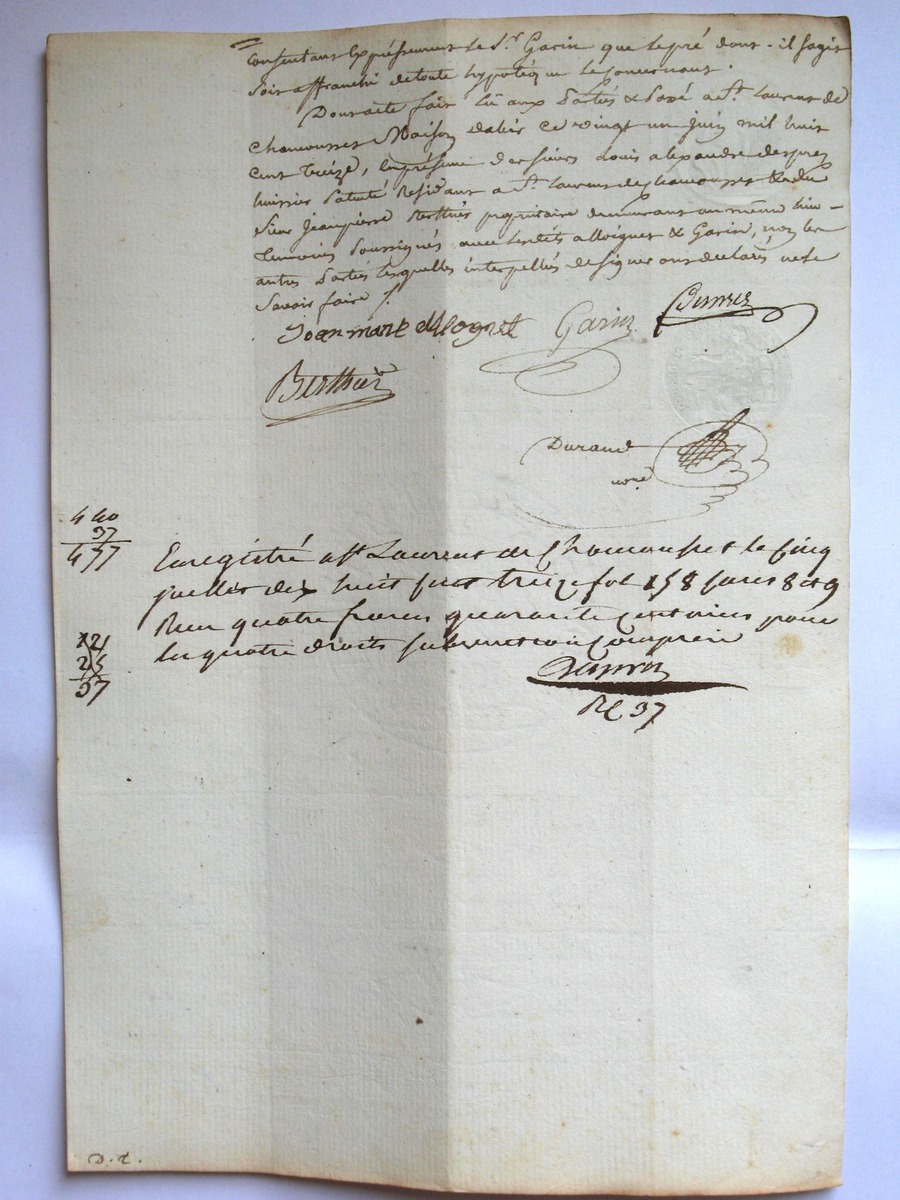 Consentant Expréssément le Sr. Garin que le pré dont il sagit
soit affranchi de toute hypotéque le Concernant.
Dont acte fait lû aux Parties & Passé a St. Laurent de
chamousset Maison Ce vingt un juin mil huit
cent treize, En présence des sieurs Louis alexandre
huissier Patenté Résidant a St. Laurent de chamousset & du
sieur Jean pierre Berthier propriétaire demeurant au même lieu
temoins soussignés avec lesdits & Garin, non les
autres Parties lesquelles interpellés de signer ont déclaré ne le
Savoir faire
Garin
Berthier
Durand
nore
4 40
37
4 77
Enregistré a St Laurent de Chamousset le Cinq
juillet dix huit cent treize fol 158 cases 8 et 9
Recu quatre francs quarante Centimes pour
les quatre droits subvention Comprise
12
25
37
Rt 37
D. t.